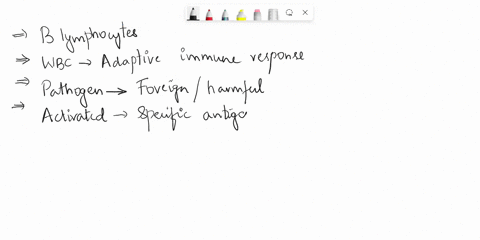 ⇒ B lymphocytes
⇒ WBC → Adaptive immune response
⇒ Pathogen → Foreign / harmful
⇒ Activated → Specific antigo